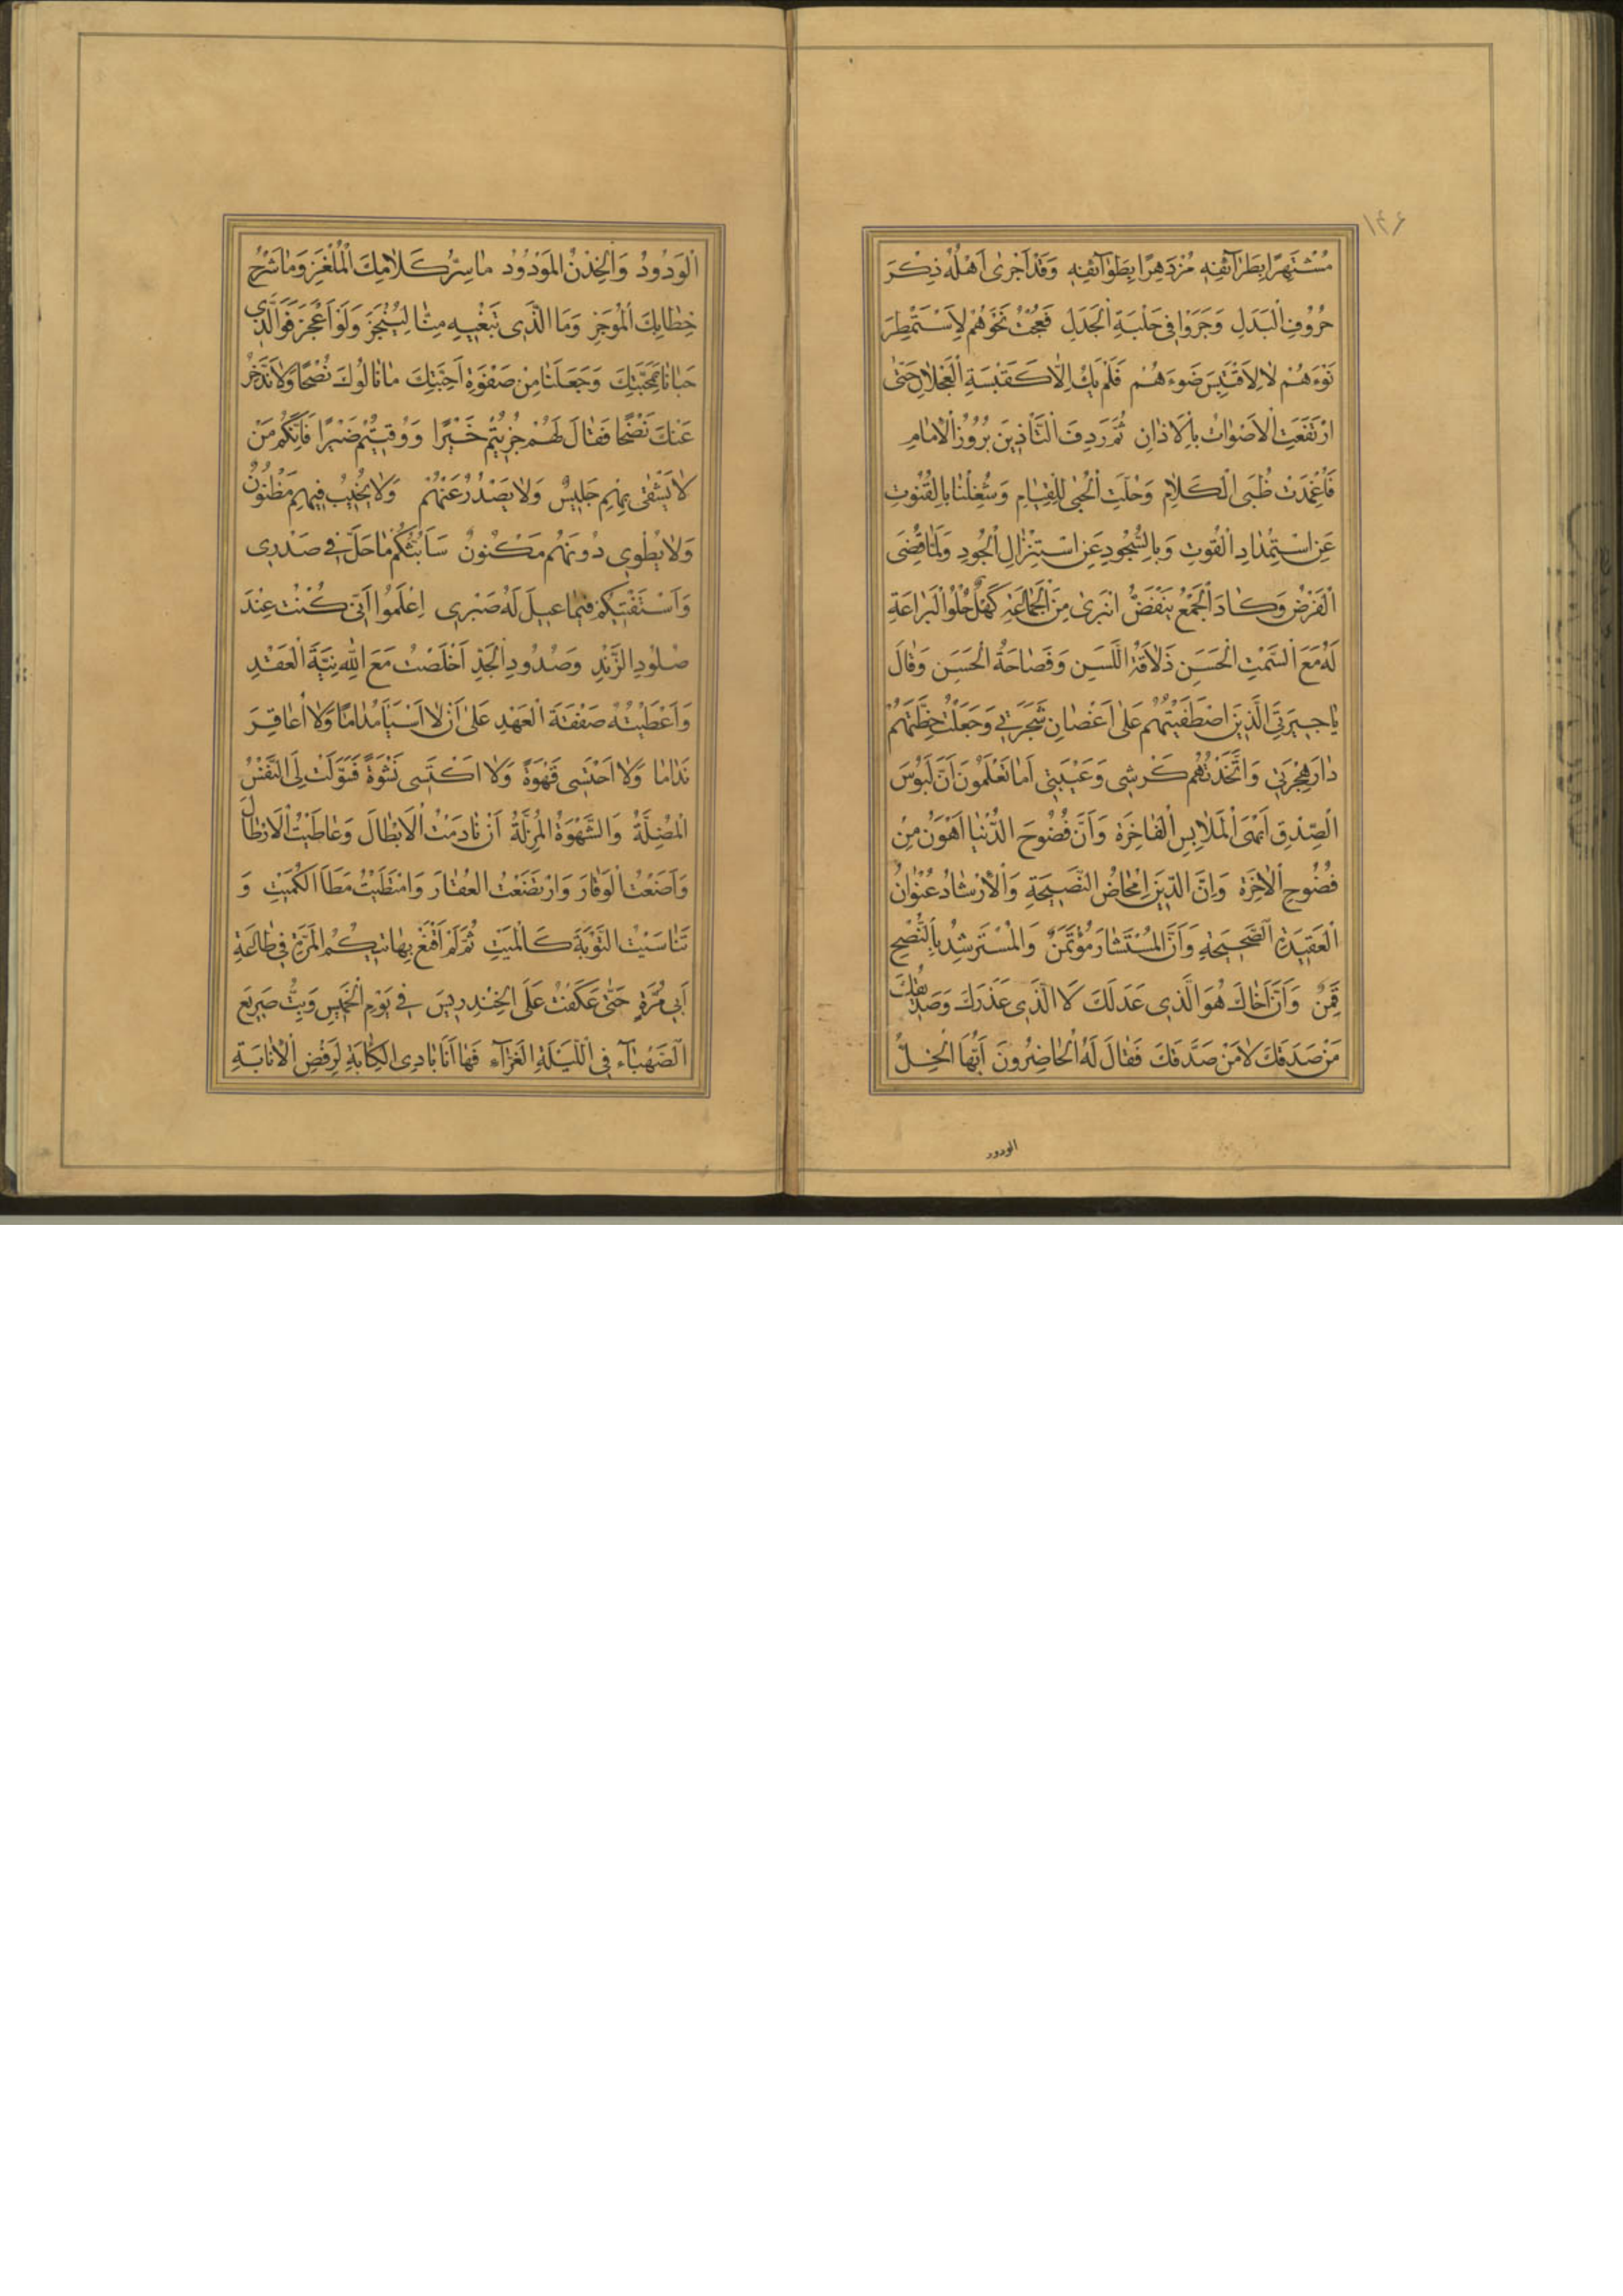 ١٤٦
مُشْتَهِرًا بِطَرَآئِفِهِ مُزْدَهِرًا بِطَوَآئِفِهِ وَقَدْ اَجْرٰى اَهْلُهُ ذِكْرَ
حُرُوفِ الْبَدَلِ وَجَرَوْا فِى حَلْبَةِ الْجَدَلِ فَعُجْتُ نَحْوَهُمْ لِاَسْتَمْطِرَ
نَوْءَهُمْ لَا لِاَقْتَبِسَ ضَوْءَهُمْ فَلَمْ يَكُ اِلَّا كَقَبْسَةِ الْعَجْلَانِ حَتّٰى
ارْتَفَعَتِ الْاَصْوَاتُ بِالْاَذَانِ ثُمَّ رَدِفَ التَّأْذِينَ بُرُوزُ الْاِمَامِ
فَاُغْمِدَتْ ظُبَى الْكَلَامِ وَحُلَّتِ الْحُبٰى لِلْقِيَامِ وَشُغِلْنَا بِالْقُنُوتِ
عَنِ اسْتِمْدَادِ الْقُوتِ وَبِالسُّجُودِ عَنِ اسْتِنْزَالِ الْجُودِ وَلَمَّا قُضِىَ
الْفَرْضُ وَكَادَ الْجَمْعُ يَنْفَضُّ انْبَرٰى مِنَ الْجَمَاعَةِ كَهْلٌ حُلْوُ الْبَرَاعَةِ
لَهُ مَعَ السَّمْتِ الْحَسَنِ ذَلَاقَةُ اللَّسِنِ وَفَصَاحَةُ الْحَسَنِ وَقَالَ
يَا جِيرَتِىَ الَّذِينَ اصْطَفَيْتُهُمْ عَلٰى اَغْصَانِ شَجَرَتِى وَجَعَلْتُ خِطَّتَهُمْ
دَارَ هِجْرَتِى وَاتَّخَذْتُهُمْ كَرِشِى وَعَيْبَتِى اَمَا تَعْلَمُونَ اَنَّ لَبُوسَ
الصِّدْقِ اَبْهَى الْمَلَابِسِ الْفَاخِرَةِ وَاَنَّ فُضُوحَ الدُّنْيَا اَهْوَنُ مِنْ
فُضُوحِ الْاٰخِرَةِ وَاِنَّ الدِّينَ اِمْحَاضُ النَّصِيحَةِ وَالْاِرْشَادُ عُنْوَانُ
الْعَقِيدَةِ الصَّحِيحَةِ وَاَنَّ الْمُسْتَشَارَ مُؤْتَمَنٌ وَالْمُسْتَرْشِدُ بِالنُّصْحِ
قَمِنٌ وَاَنَّ اَخَاكَ هُوَ الَّذِى عَذَلَكَ لَا الَّذِى عَذَرَكَ وَصَدِيقُكَ
مَنْ صَدَقَكَ لَا مَنْ صَدَّقَكَ فَقَالَ لَهُ الْحَاضِرُونَ اَيُّهَا الْخِلُّ
الودود
الْوَدُودُ وَالْخِدْنُ الْمَوْدُودُ مَا سِرُّ كَلَامِكَ الْمُلْغَزِ وَمَا شَرْحُ
خِطَابِكَ الْمُوجَزِ وَمَا الَّذِى تَبْغِيهِ مِنَّا لِيُنْجَزَ وَلَوْ اَعْجَزَ فَوَالَّذِى
حَبَانَا بِمَحَبَّتِكَ وَجَعَلَنَا مِنْ صَفْوَةِ اَحِبَّتِكَ مَا نَالُوكَ نُصْحًا وَلَا نَدَّخِرُ
عَنْكَ نَضْحًا فَقَالَ لَهُمْ جُزِيتُمْ خَيْرًا وَوُقِيتُمْ ضَيْرًا فَاِنَّكُمْ مَنْ
لَا يَشْقٰى بِهِمْ جَلِيسٌ وَلَا يَصْدُرُ عَنْهُمْ وَلَا يُخَيَّبُ فِيهِمْ مَظْنُونٌ
وَلَا يُطْوٰى دُونَهُمْ مَكْنُونٌ سَاَبُثُّكُمْ مَا حَلَّ فِى صَدْرِى
وَاَسْتَفْتِيكُمْ فِيمَا عِيلَ لَهُ صَبْرِى اِعْلَمُوا اَنِّى كُنْتُ عِنْدَ
صُلُودِ الزَّنْدِ وَصُدُودِ الْجَدِّ اَخْلَصْتُ مَعَ اللّٰهِ نِيَّةَ الْعَقْدِ
وَاَعْطَيْتُهُ صَفْقَةَ الْعَهْدِ عَلٰى اَنْ لَا اَسْبَأَ مُدَامًا وَلَا اُعَاقِرَ
نَدَامَا وَلَا اَحْتَسِى قَهْوَةً وَلَا اَكْتَسِى نَشْوَةً فَسَوَّلَتْ لِىَ النَّفْسُ
الْمُضِلَّةُ وَالشَّهْوَةُ الْمُزِلَّةُ اَنْ نَادَمْتُ الْاَبْطَالَ وَعَاطَيْتُ الْاَرْطَالَ
وَاَضَعْتُ الْوَقَارَ وَارْتَضَعْتُ الْعُقَارَ وَامْتَطَيْتُ مَطَا الْكُمَيْتِ وَ
تَنَاسَيْتُ التَّوْبَةَ كَالْمَيِّتِ ثُمَّ لَمْ اَقْنَعْ بِهَاتِيكُمُ الْمَرَّةِ فِى طَاعَةِ
اَبِى مُرَّةٍ حَتّٰى عَكَفْتُ عَلَى الْخَنْدَرِيسِ فِى يَوْمِ الْخَمِيسِ وَبِتُّ صَرِيعَ
الصَّهْبَآءِ فِى اللَّيْلَةِ الْغَرَّآءِ فَهَا اَنَا بَادِى الْكَآبَةِ لِرَفْضِ الْاِنَابَةِ